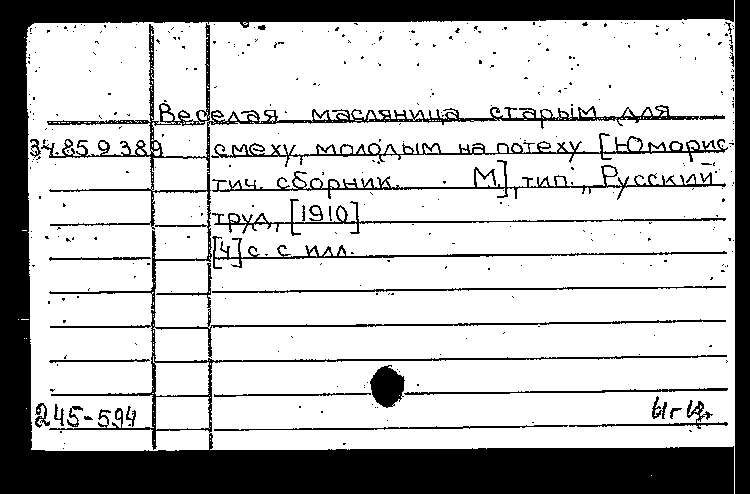 Веселая масляница старым для
34.85.9.389 смеху, молодым на потеху [Юморис
тич. сборник. М.], тип. „Русский
труд, [1910]
[4] с. с илл.
245-594